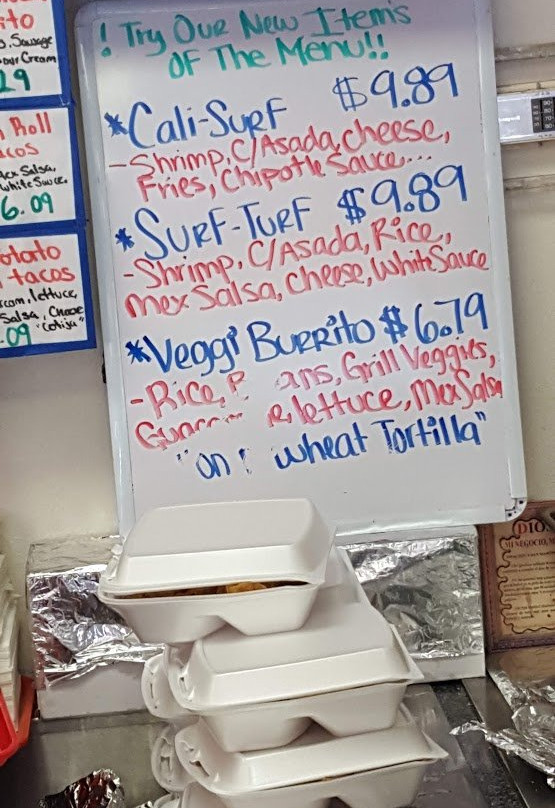 ! Try Our New Items
Of The Menu!!
*Cali-Surf $9.89
-Shrimp, C/Asada, Cheese,
Fries, Chipotle Sauce...
*Surf-Turf $9.89
-Shrimp, C/Asada, Rice,
Mex Salsa, Cheese, White Sauce
*Veggi Burrito $6.79
-Rice, B ans, Grill Veggies,
Guac lettuce, Mex Salsa
"on wheat Tortilla"
ito
Sausage
our Cream
29
Roll
acos
Salsa,
White Sauce.
6.09
otato
tacos
lettuce,
Salsa, Choose
.09 "Cotija"
DIO
MI NEGOCIO,